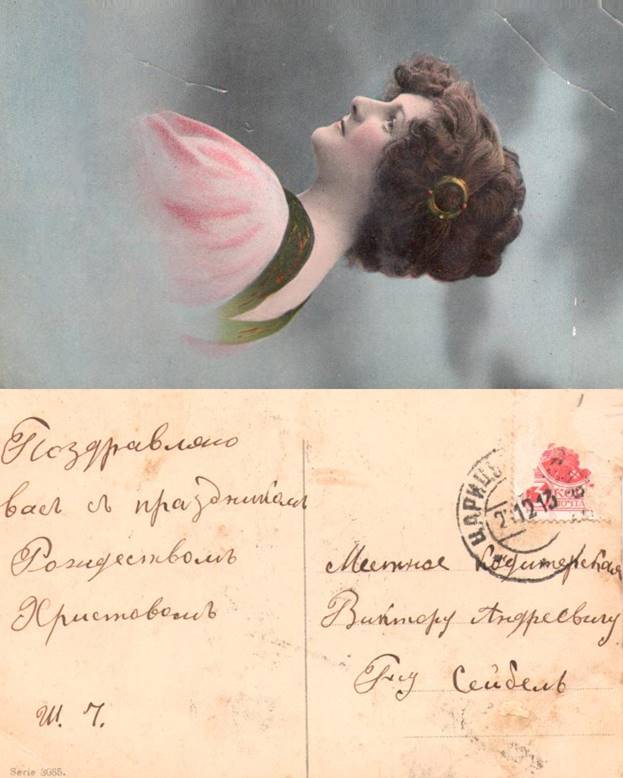 Поздравляю
васъ съ праздникомъ
Рождествомъ
Христовомъ
Ш. Ч.
Serie 3065.
ЦАРИЦЫ
12 13
3
Местное Кодитерская
Виктору Андреевичу
Г-ну Сейбель